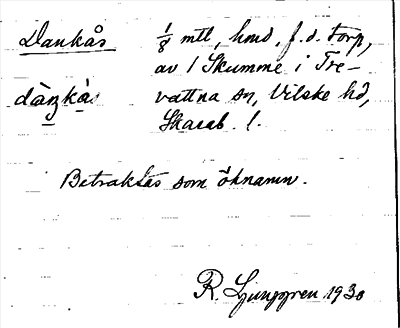 Dankås 1/8 mtl, hmd, f.d. torp,
av 1 Skumme i Tre-
dàŋkà. vattna sn, Vilske hd,
Skarab. l.
Betraktas som öknamn.
R. Ljunggren 1930